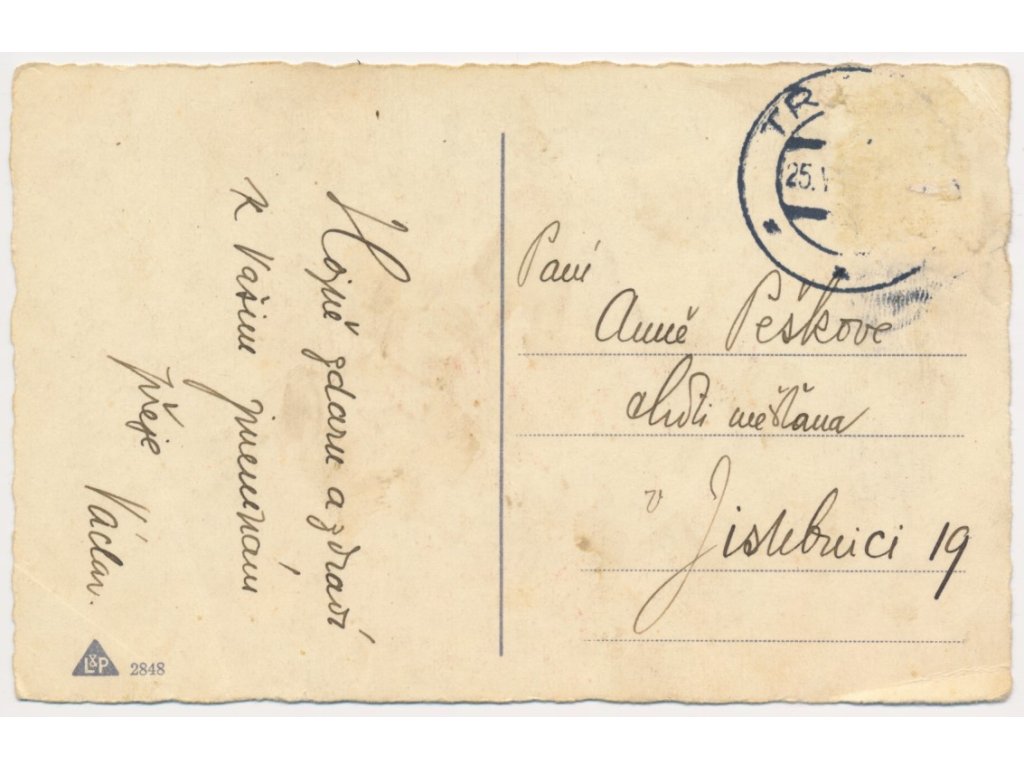 Hojně zdaru a zdraví
k Vašim jmeninám
přeje
Václav.
TR
25. V
Paní
Anně Peškove
choti měšťana
v Jistebnici 19
L&P 2848